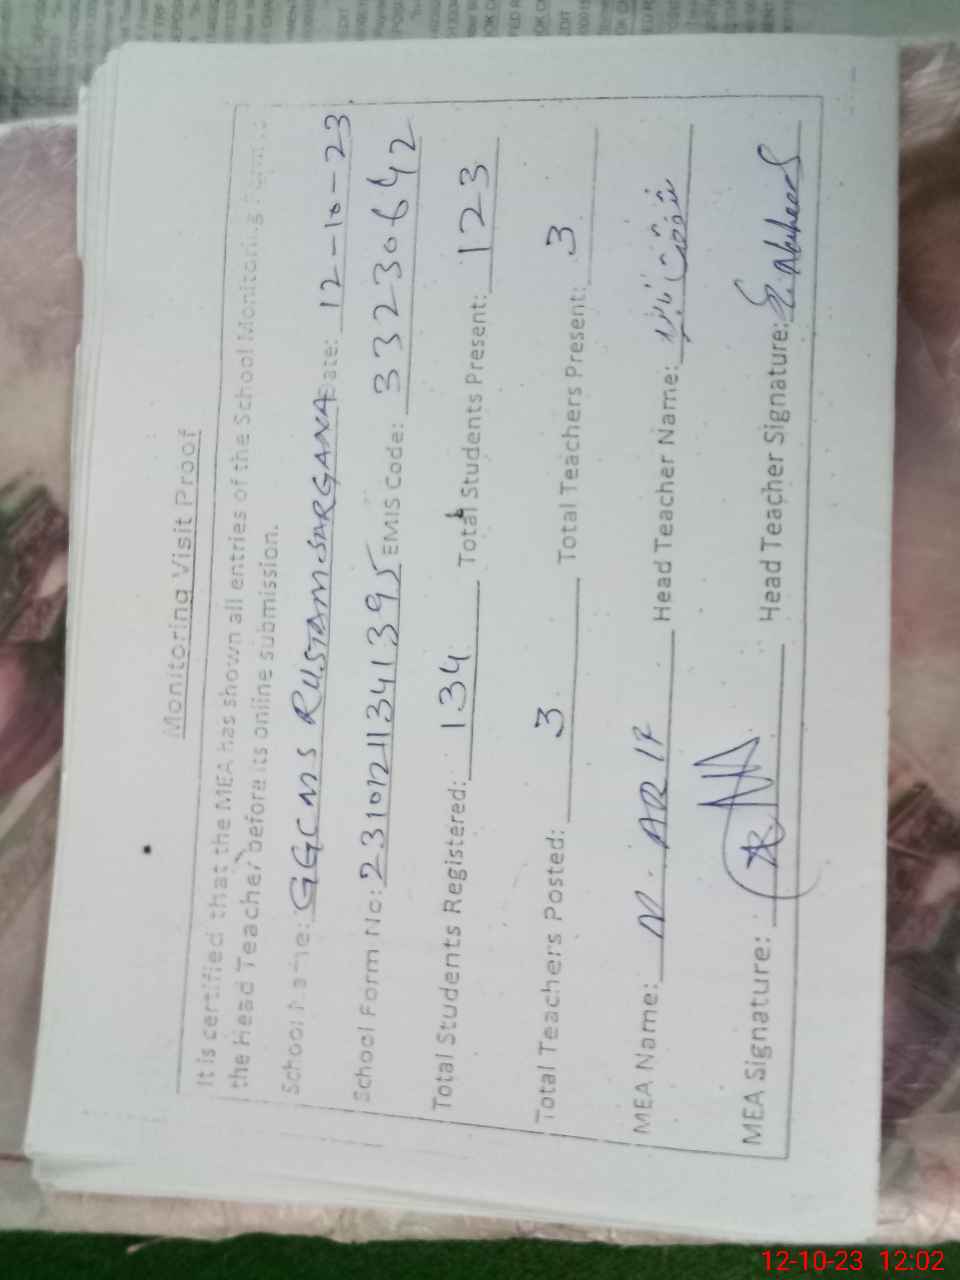 Monitoring Visit Proof
It is certified that the MEA has shown all entries of the School Monitoring Form to
the Head Teacher before its online submission.
School Name: GGCMS RUSTAM SARGANA Date: 12-10-23
School Form No: 23101211341395 EMIS Code: 33230642
Total Students Registered: 134 Total Students Present: 123
Total Teachers Posted: 3 Total Teachers Present: 3
MEA Name: M. ARIF Head Teacher Name: شفقت
MEA Signature: Head Teacher Signature:
12-10-23 12:02